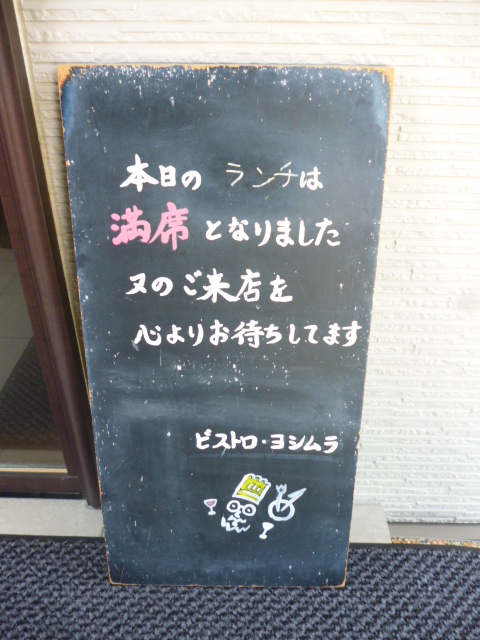 本日の ランチは
満席 となりました
又のご来店を
心よりお待ちしてます
ビストロ・ヨシムラ